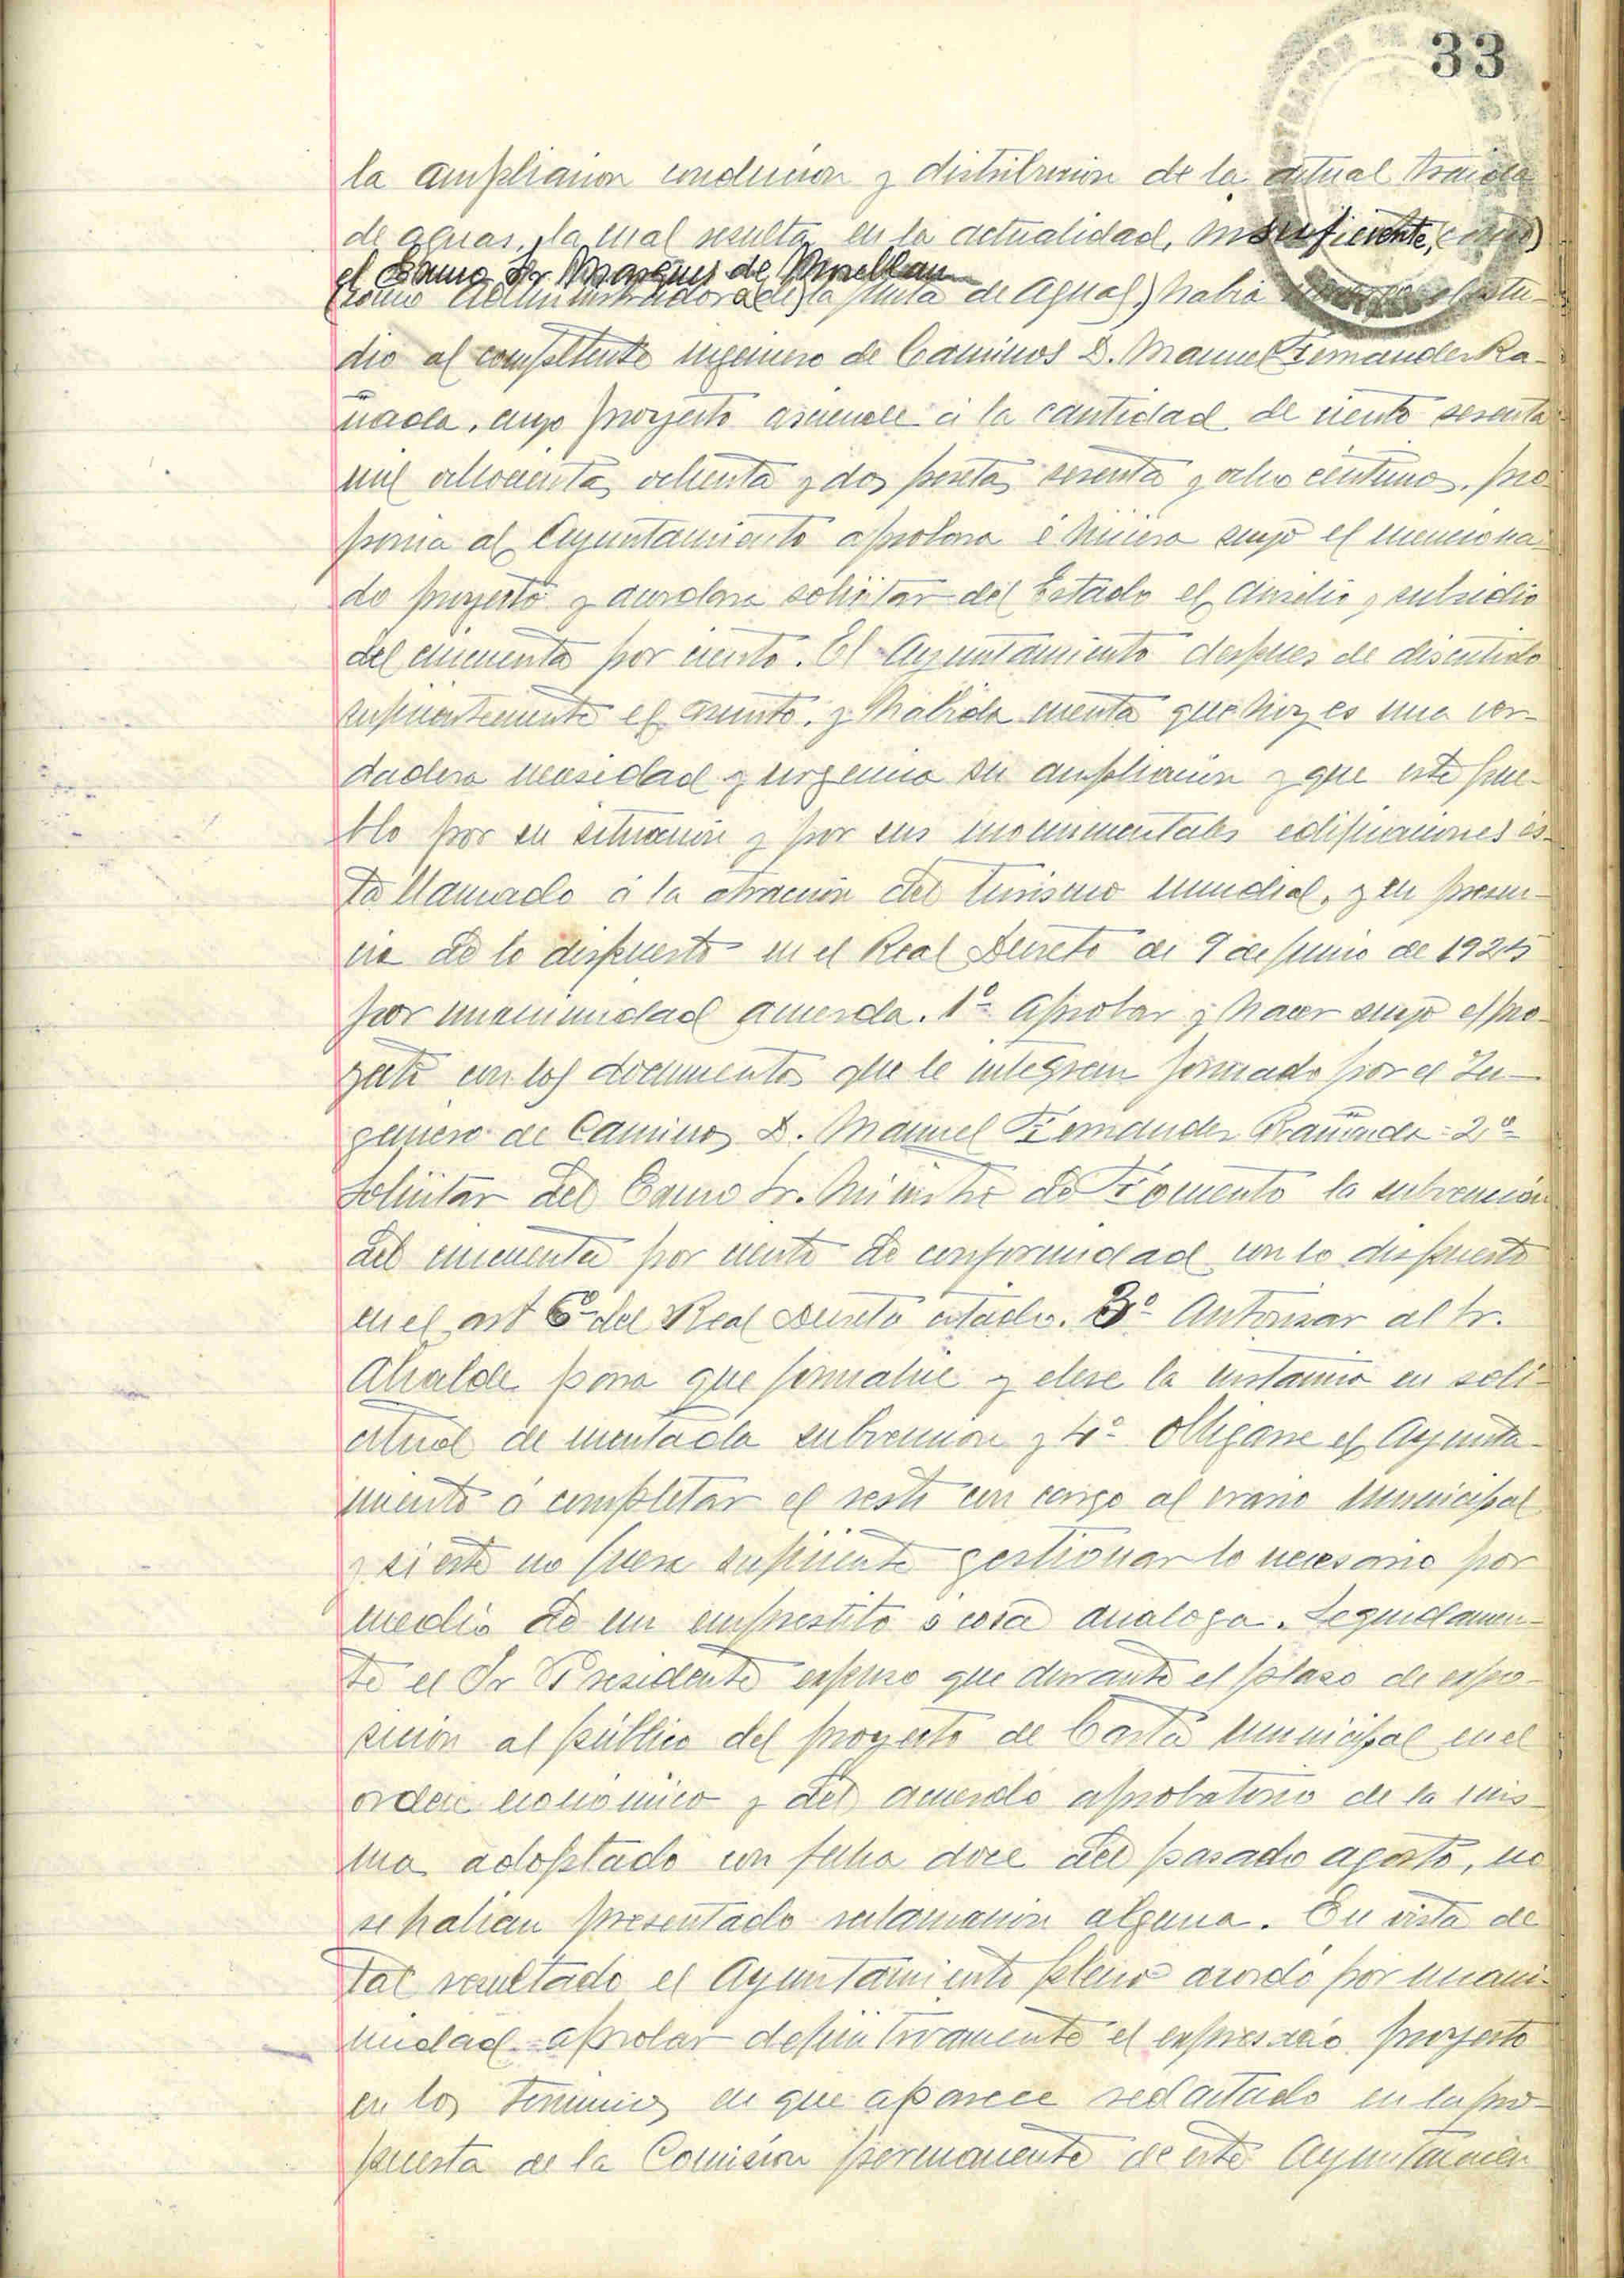 33
la ampliacion conduccion y distribucion de la actual traida
de aguas, la cual resulta en la actualidad, insuficiente, (como)
el Excmo Sr Marques de
(como Administradora de) la Junta de aguas) habia estu-
dio al competente ingeniero de Caminos D. Manuel Fernandez Ra-
ñada, cuyo proyecto asciende á la cantidad de ciento sesenta
mil ochocientas ochenta y dos pesetas sesenta y ocho centimos, pro
ponia al Ayuntamiento aprobara é hiciera suyo el menciona-
do proyecto y acordara solicitar del Estado el auxilio y subsidio
del cincuenta por ciento. El Ayuntamiento despues de discutido
suficientemente el asunto, y habida cuenta que hoy es una ver-
dadera necesidad y urgencia su ampliacion y que este pue-
blo por su situacion y por sus monumentales edificaciones es-
ta llamado á la atracción del turismo mundial, y en presen-
cia de lo dispuesto en el Real Decreto de 9 de Junio de 1925
por unanimidad acuerda. 1º aprobar y hacer suyo el pro-
yecto con los documentos que le integran formado por el In-
geniero de Caminos D. Manuel Fernandez Rañada = 2º
Solicitar del Excmo Sr. Ministro de Fomento la subvención
del cincuenta por ciento de conformidad con lo dispuesto
en el art 6º del Real Decreto citado. 3º Autorizar al Sr.
Alcalde para que formalice y eleve la instancia en soli-
citud de mentada subvencion y 4º Obligarse el Ayunta-
miento á completar el resto con cargo al erario municipal
y si este no fuera suficiente gestionar lo necesario por
medio de un emprestito ó cosa analoga. Seguidamen-
te el Sr Presidente expuso que durante el plazo de expo-
sición al público del proyecto de Carta municipal en el
orden económico y del acuerdo aprobatorio de la mis-
ma adoptado con fecha doce del pasado agosto, no
se habian presentado reclamación alguna. En vista de
tal resultado el Ayuntamiento pleno acordó por unani-
midad aprobar definitivamente el expresado proyecto
en los terminos en que aparece redactado en la pro-
puesta de la Comisión permanente de este Ayuntamien